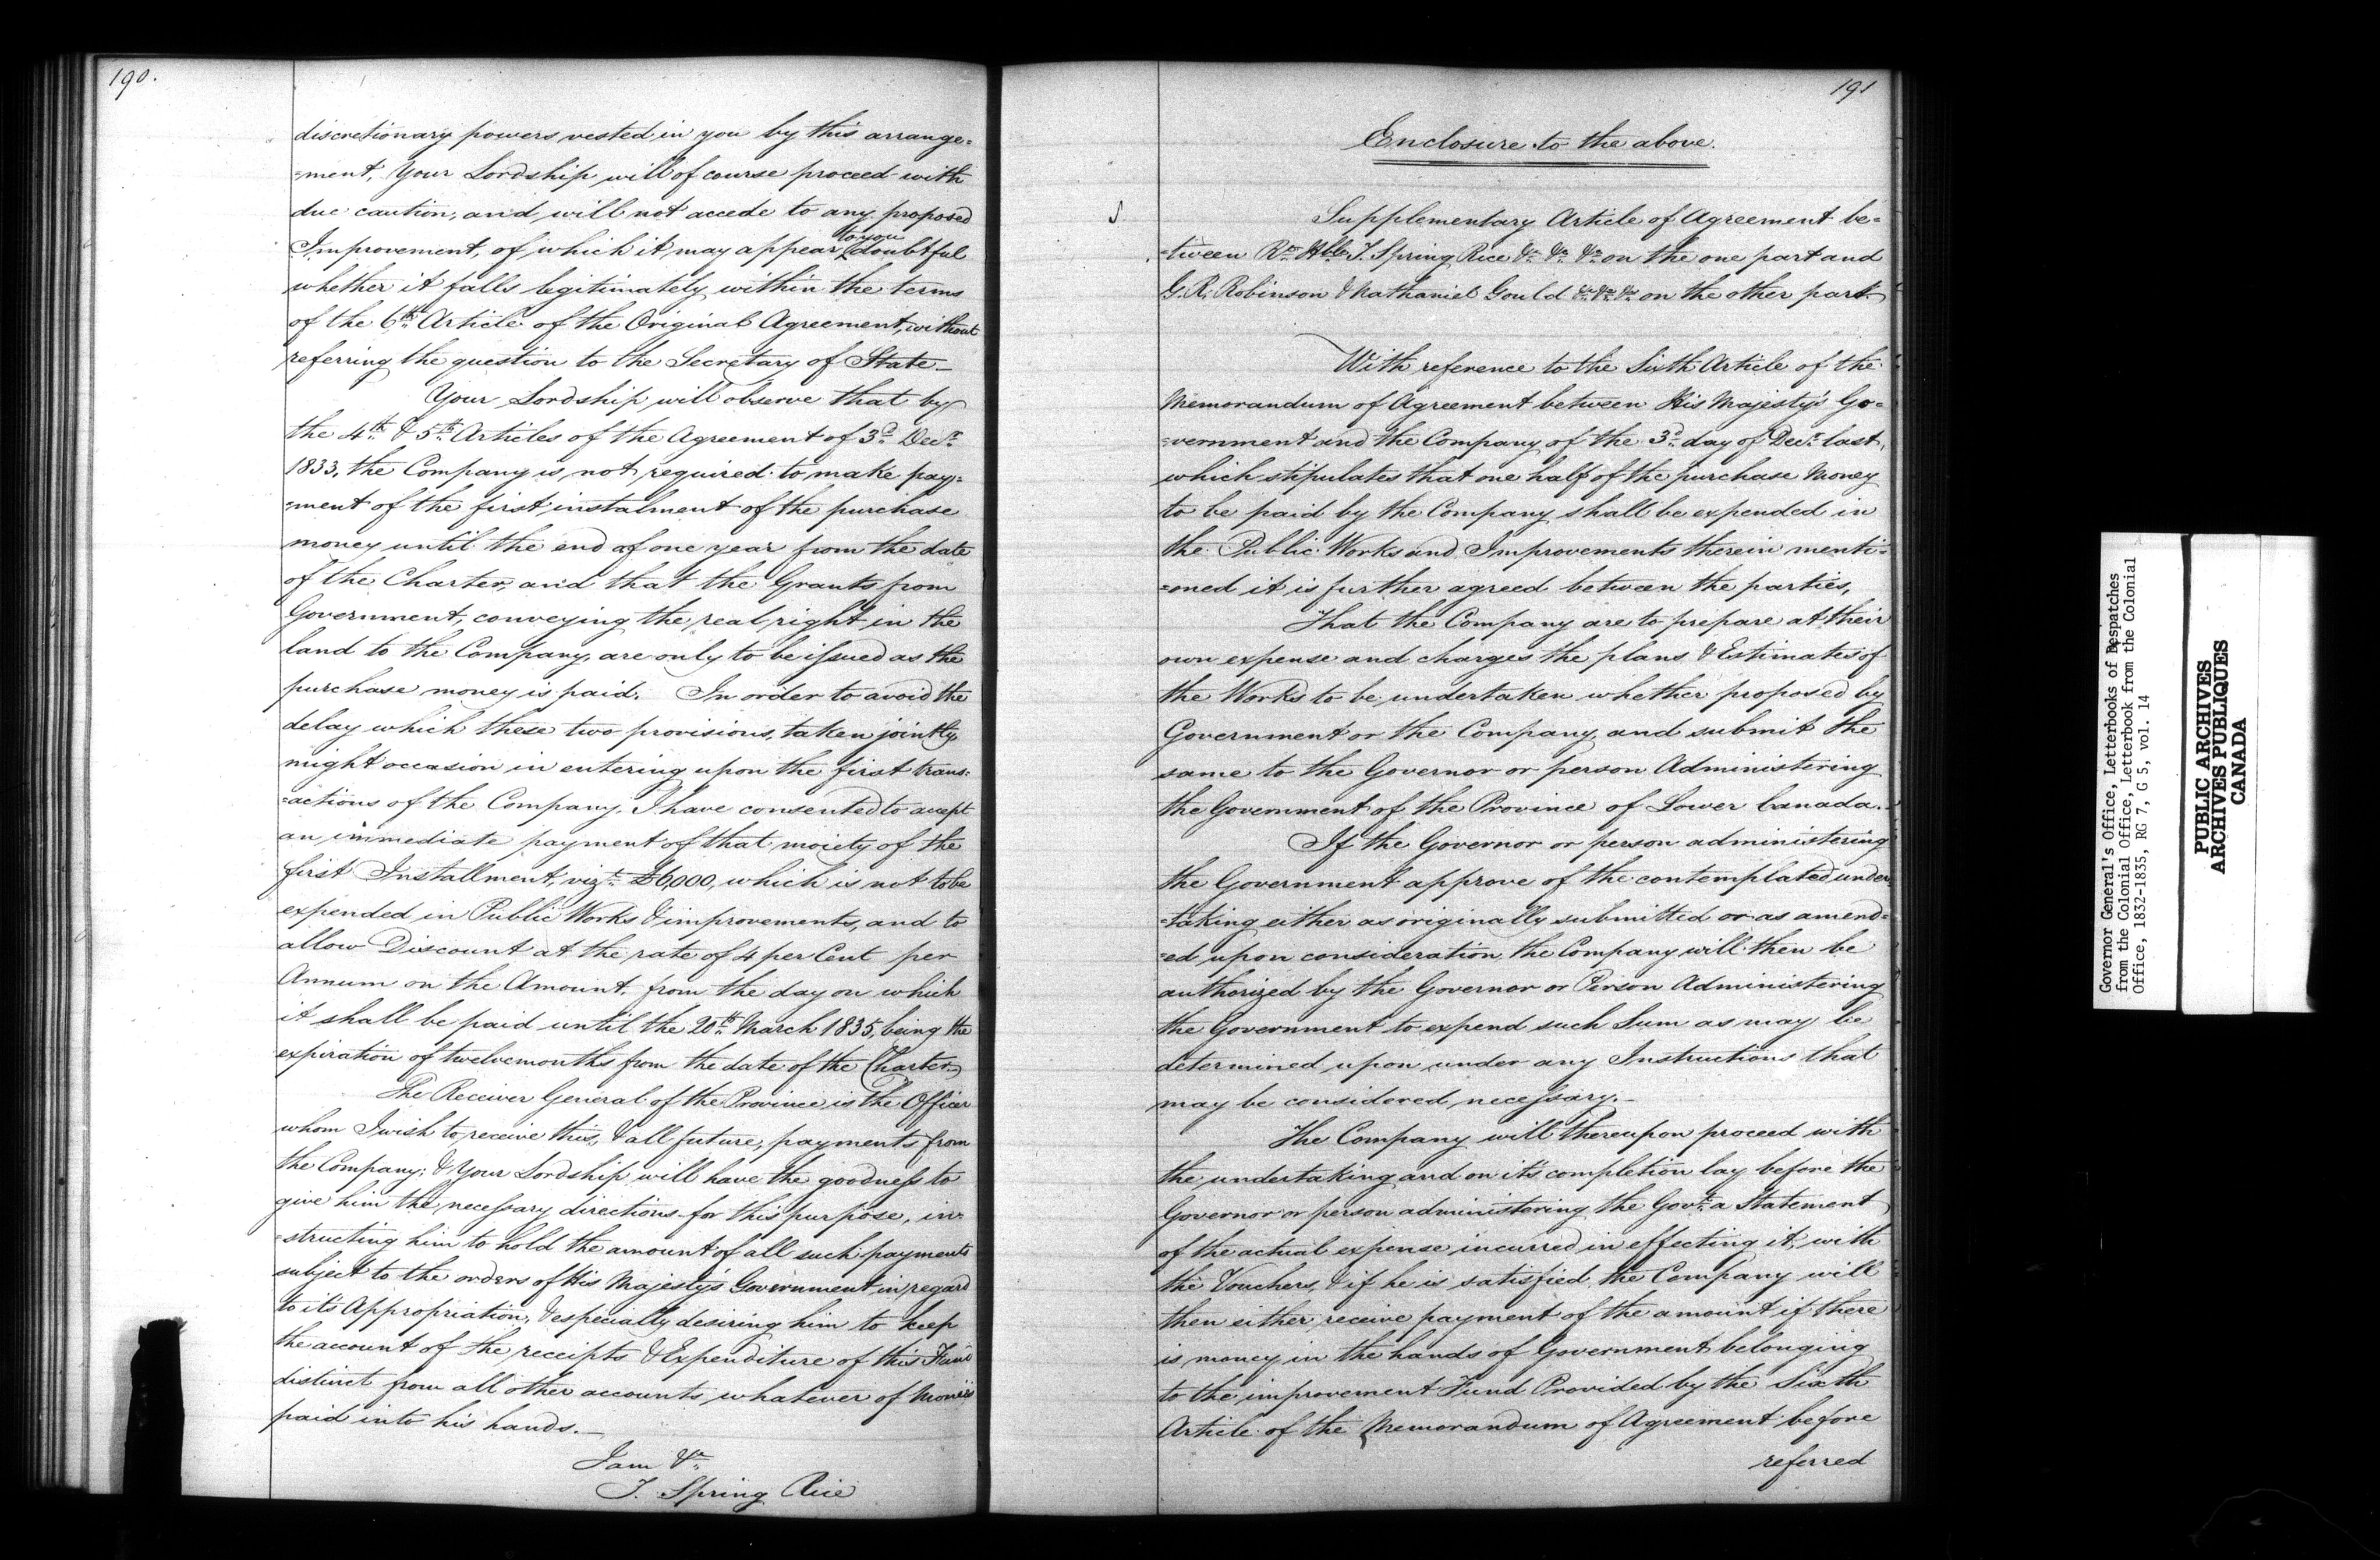 190.
discretionary powers vested in you by this arrange=
=ment, Your Lordship will of course proceed with
due caution, and will not accede to any proposed
Improvement, of which it may appear to you doubtful
whether it falls legitimately within the terms
of the 6th Article of the Original Agreement, without
referring the question to the Secretary of State_
Your Lordship will observe that by
the 4th & 5th Articles of the Agreement of 3d Decr
1833, the Company is not required to make pay=
=ment of the first instalment of the purchase
money until the end of one year from the date
of the Charter, and that the Grants from
Government, conveying the real right in the
land to the Company, are only to be issued as the
purchase money is paid. In order to avoid the
delay which these two provisions, taken jointly
might occasion in entering upon the first trans=
=actions of the Company, I have consented to accept
an immediate payment of that moiety of the
first Installment, vizt £6,000, which is not to be
expended in Public Works & improvements, and to
allow Discount at the rate of 4 per Cent per
Annum on the Amount, from the day on which
it shall be paid until the 20th March 1835, being the
expiration of twelvemonths from the date of the Charter.
The Receiver General of the Province is the Officer
whom I wish to receive this, & all future, payments from
the Company; & Your Lordship will have the goodness to
give him the necessary directions for this purpose, in=
=structing him to hold the amount of all such payments
subject to the orders of His Majesty's Government in regard
to it's Appropriation, & especially desiring him to keep
the account of the receipts & Expenditure of this Fund
distinct from all other accounts whatever of Monies
paid into his hands._
I am &c
T. Spring Rice
191
Enclosure to the above.
Supplementary Article of Agreement be=
=tween Rt Hble T. Spring Rice &c &c &c on the one part and
G. R. Robinson & Nathaniel Gould &c &c &c on the other part.
With reference to the Sixth Article of the
Memorandum of Agreement between His Majesty's Go=
=vernment and the Company of the 3d day of Decr last,
which stipulates that one half of the purchase Money
to be paid by the Company shall be expended in
the Public Works and Improvements therein menti=
=oned it is further agreed between the parties,
That the Company are to prepare at their
own expense and charges the plans & Estimates of
the Works to be undertaken whether proposed by
Government or the Company, and submit the
same to the Governor or person Administering
the Government of the Province of Lower Canada._
If the Governor or person administering
the Government approve of the contemplated under
=taking either as originally submitted or as amend=
=ed upon consideration the Company will then be
authorized by the Governor or Person Administering
the Government to expend such Sum as may be
determined upon under any Instructions that
may be considered necessary._
The Company will thereupon proceed with
the undertaking and on it's completion lay before the
Governor or person administering the Govt a Statement
of the actual expense incurred in effecting it, with
the Vouchers, & if he is satisfied, the Company will
then either receive payment of the amount if there
is money in the hands of Government belonging
to the improvement Fund Provided by the Sixth
Article of the Memorandum of Agreement before
referred
Governor General's Office, Letterbooks of Despatches
from the Colonial Office, Letterbook from the Colonial
Office, 1832-1835, RG 7, G 5, vol. 14
PUBLIC ARCHIVES
ARCHIVES PUBLIQUES
CANADA